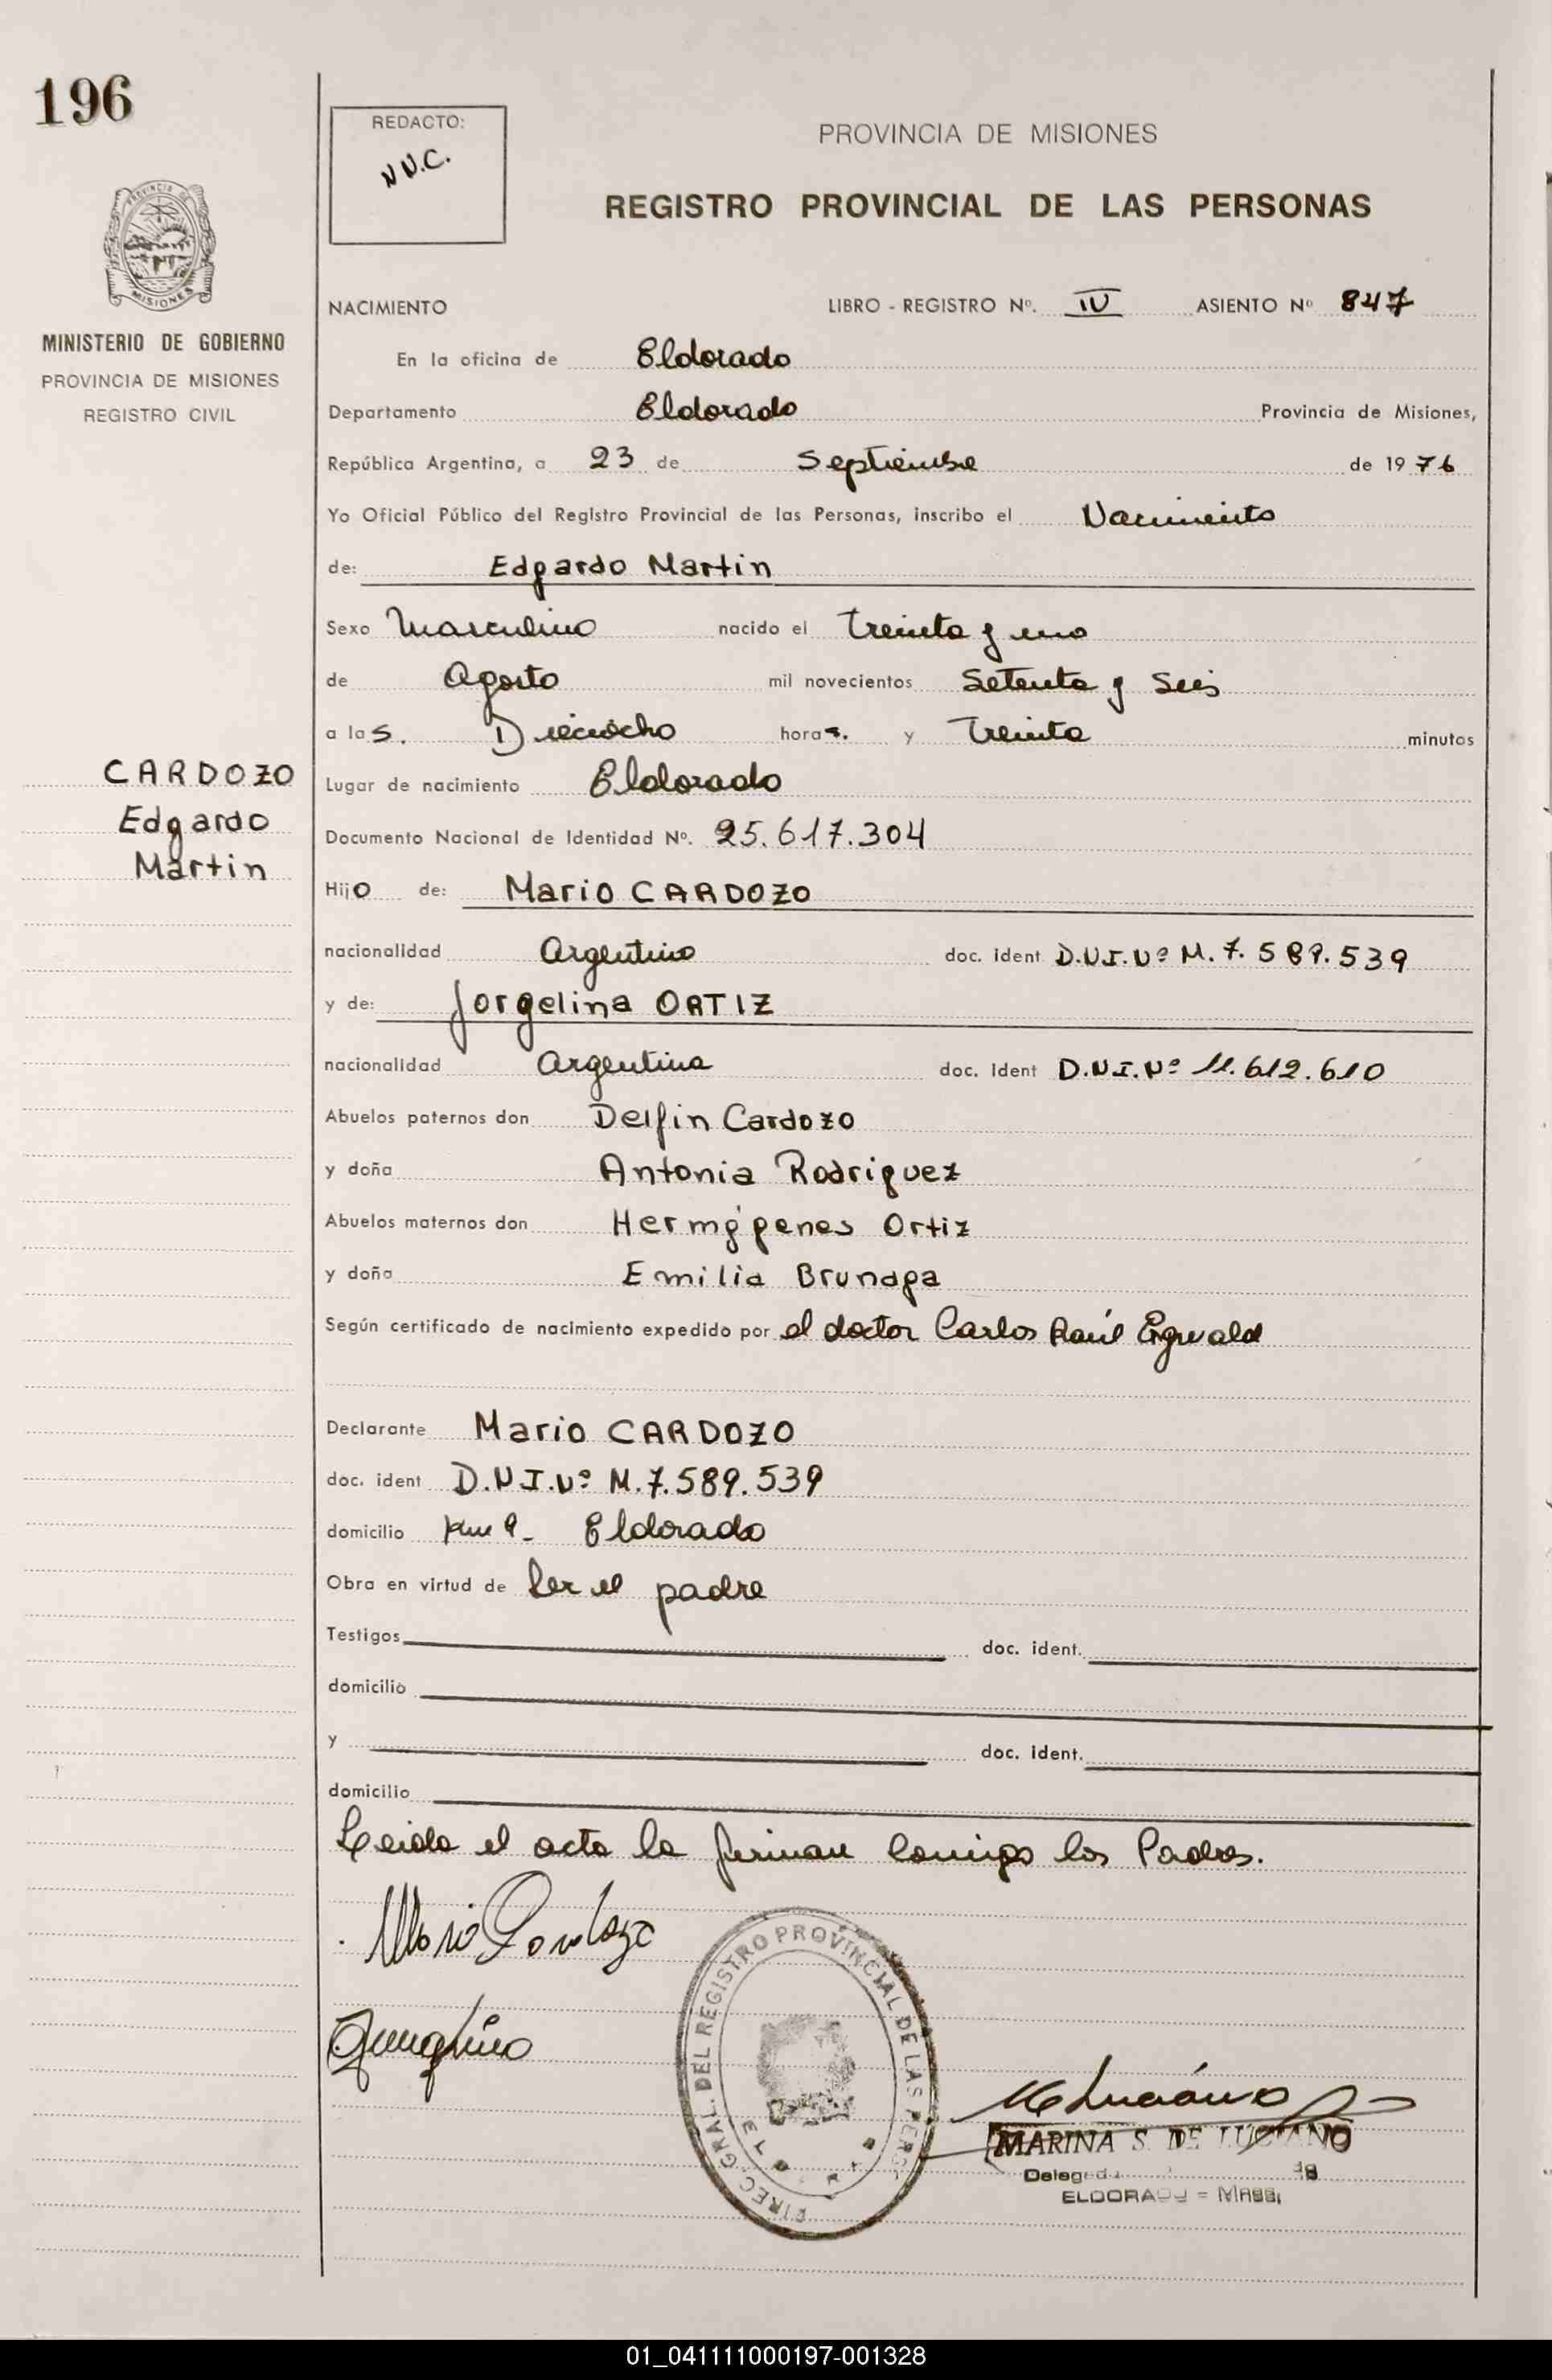 196
REDACTO:
N N.C.
PROVINCIA DE MISIONES
REGISTRO PROVINCIAL DE LAS PERSONAS
PROVINCIA DE
MISIONES
MINISTERIO DE GOBIERNO
PROVINCIA DE MISIONES
REGISTRO CIVIL
NACIMIENTO LIBRO - REGISTRO Nº. IV ASIENTO Nº 847
En la oficina de Eldorado
Departamento Eldorado Provincia de Misiones,
República Argentina, a 23 de Septiembre de 1976
Yo Oficial Público del Registro Provincial de las Personas, inscribo el Nacimiento
de: Edgardo Martin
Sexo Masculino nacido el treinta y uno
de Agosto mil novecientos Setenta y Seis
a las. Dieciocho horas. y Treinta minutos
CARDOZO
Edgardo
Martin
Lugar de nacimiento Eldorado
Documento Nacional de Identidad Nº. 25.617.304
Hijo de: Mario CARDOZO
nacionalidad Argentino doc. ident D.N.I.Nº M.7.589.539
y de: Jorgelina ORTIZ
nacionalidad Argentina doc. ident D.N.I.Nº 11.612.610
Abuelos paternos don Delfin Cardozo
y doña Antonia Rodriguez
Abuelos maternos don Hermógenes Ortiz
y doña Emilia Brunaga
Según certificado de nacimiento expedido por el doctor Carlos Raúl
Declarante Mario CARDOZO
doc. ident D.N.I.Nº M.7.589.539
domicilio Km 9- Eldorado
Obra en virtud de Ser el padre
Testigos doc. ident.
domicilio
y doc. ident.
domicilio
Leida el acta la firman conmigo los Padres.
Mario Cardozo
DIREC. GRAL. DEL REGISTRO PROVINCIAL DE LAS PERS.
MARINA S. DE LUCIANO
ELDORADO = Mnes,
01_041111000197-001328